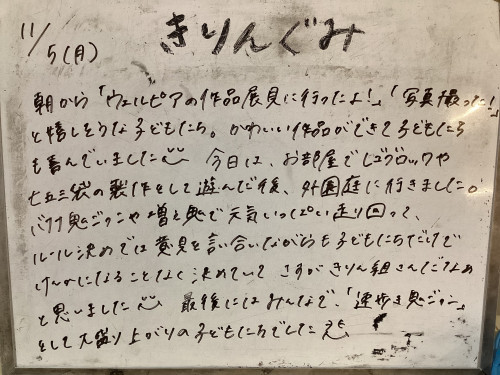 11/5(月) きりんぐみ
朝から「ウェルピアの作品展見に行ったよ!」「写真撮った!」
と嬉しそうな子どもたち。かわいい作品ができて子どもたち
も喜んでいました 今日は、お部屋でLaQブロックや
七五三袋の製作をして遊んだ後、外園庭に行きました。
バナナ鬼ごっこや増え鬼で元気いっぱい走り回って、
ルール決めでは意見を言い合いながらも子どもたちだけで
けんかになることなく決めていて さすがきりん組さんだなぁ
と思いました 最後にはみんなで、「速歩き鬼ごっこ」
をして大盛り上がりの子どもたちでした